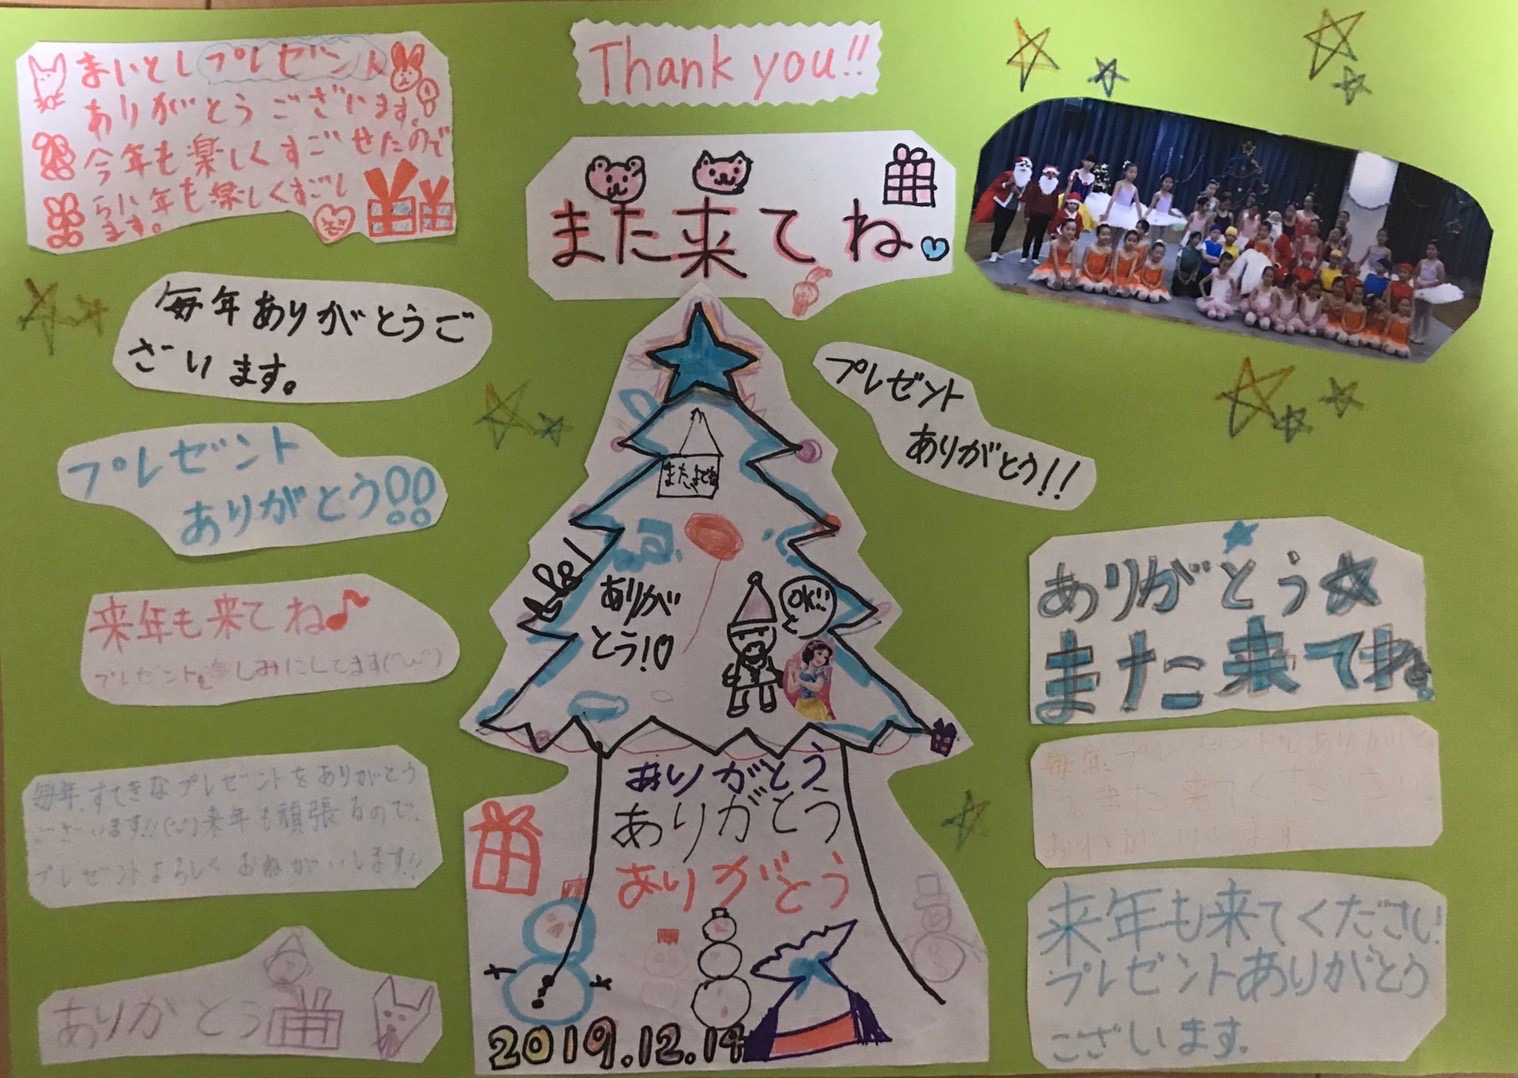 Thank you!!
まいとしプレゼント
ありがとうございます。
今年も楽しくすごせたので
らい年も楽しくすごし
ます。
また来てね
毎年ありがとうご
ざいます。
プレゼント
ありがとう!!
プレゼント
ありがとう!!
来年も来てね♪
プレゼントも楽しみにしてます(^ω^)
毎年、すてきなプレゼントをありがとう
ございます!!(^^)来年も頑張るので、
プレゼントよろしくおねがいします!!
ありがとう
ありが
とう!♡
OK!!
ありがとう
ありがとう
ありがとう
2019.12.14
ありがとう☆
また来てね
毎年、プレゼントをありがとう
また来てください
おねがいします
来年も来てください
プレゼントありがとう
ございます。